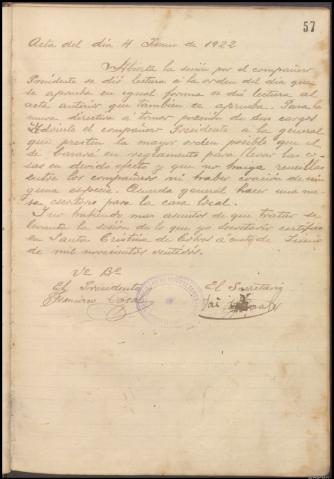 57
Acta del dia 4 Junio de 1922
Abierta la sesion por el compañero
Presidente se dió lectura á la orden del dia que
se aprueba en igual forma se dió lectura al
acta anterior que tambien se aprueba. Pasa la
nueva directiva á tomar posesion de sus cargos
Advierte el compañero Presidente a la general
que presten la mayor orden posible que el
se basará en reglamento para llevar las co-
sas en devido efecto y que no haya rencillas
entre los compañeros ni haber de nin
guna especie. Acuerda general hacer una me
sa escritorio para la casa local.
Y no habiendo mas asuntos de que tratar se
levanta la sesion de lo que yo Secretario certifico
en Santa Cristina de Cobres a cuatro de Junio
de mil novecientos veintidos.
Vº Bº
El Presidente
El Secretario
Francisco